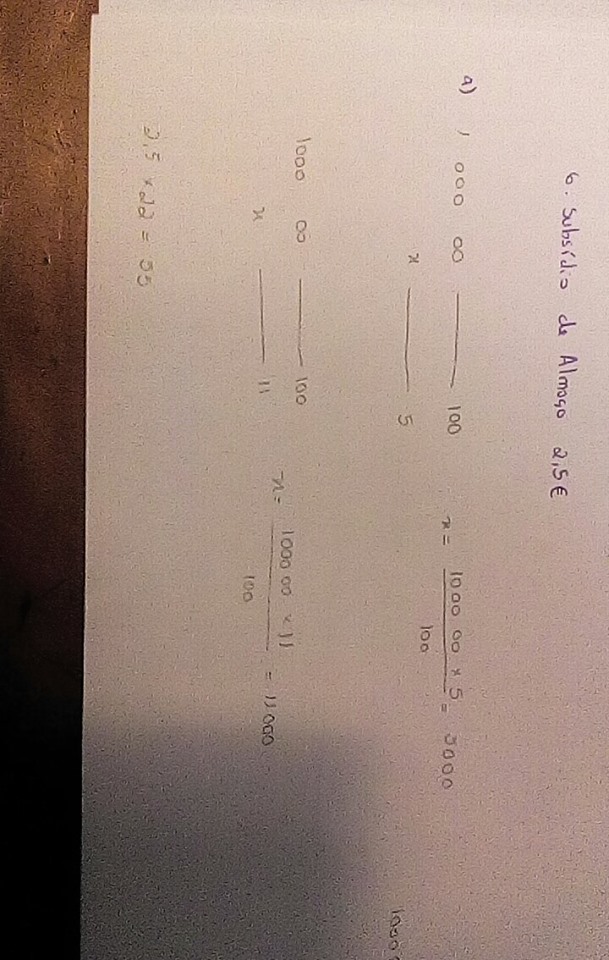 6. Subsídio de Almoço 2,5€
a) 1 000 00 —— 100 x = 1000 00 x 5 / 100 = 5000
x —— 5
1000
1000 00 —— 100 x = 1000 00 x 11 / 100 = 11000
x —— 11
2,5 x 22 = 55